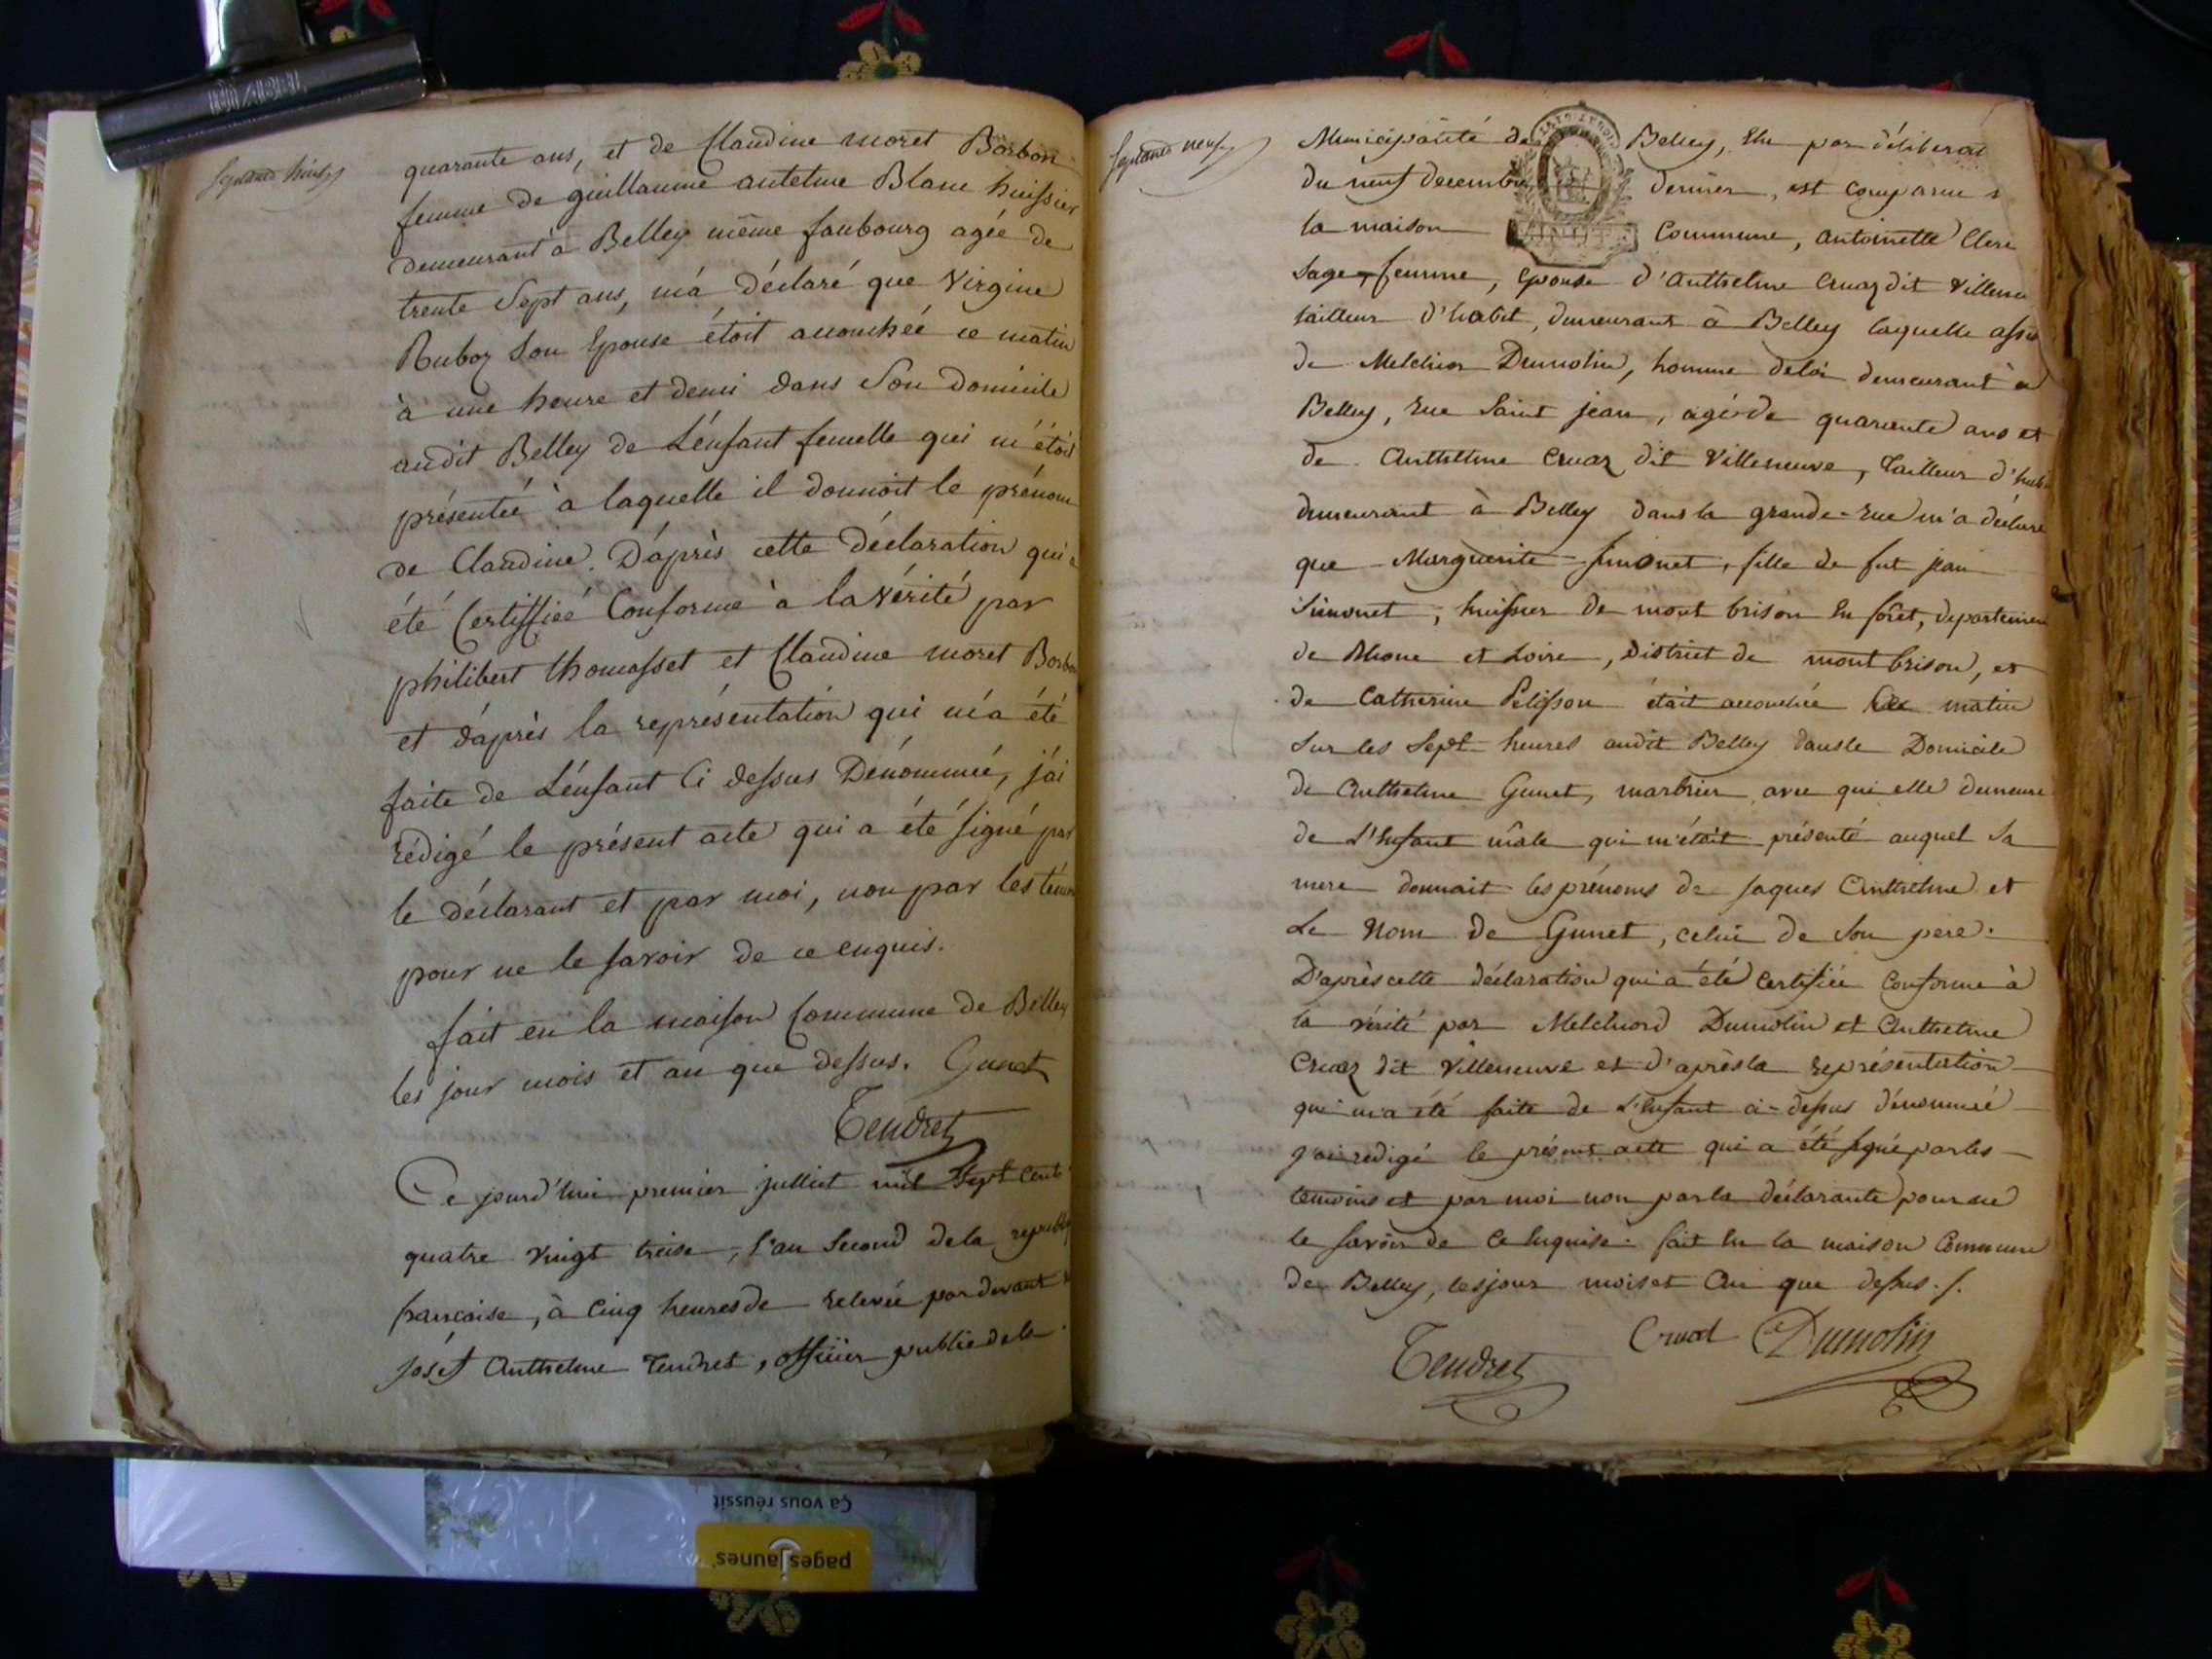 quarante ans, et de Claudine moret Borbon
femme de guillaume antelme Blanc huissier
demeurant à Belley même faubourg agée de
trente Sept ans, m'a déclaré que Virgine
Ruboz Son Epouse étoit accouchée ce matin
à une heure et demi dans Son Domicile
audit Belley de L'énfant femelle qui m'étoit
présentée à laquelle il donnoit le prénom
de Claudine. D'après cette Déclaration qui a
été Certiffiée Conforme à la vérité par
philibert thomasset et Claudine moret Borbon
et d'après la représentation qui m'a été
faite de L'énfant Ci dessus Dénommée, j'ai
rédigé le présent acte qui a été signé par
le déclarant et par moi, non par les
pour ne le savoir de ce enquis.
fait en la maison Commune de Belley
les jour mois et an que dessus. Gunet
Tendret
Ce jourd'hui premier julliet mil Sept Cent
quatre vingt treise, l'an Second de la
francaise, à Cinq heures de relevée pardevant
Josef Anthelme Tendret, officier public de la
Municipalité de Belley, Elu par déliberat
du neuf decembre dernier, est comparue
la maison Commune, antoinette Clerc
Sage-femme, épouse d'Anthelme Cruaz dit Villeneu
tailleur d'habit, demeurant à Belley laquelle assis
de Melchior Dumolin, homme deloi demeurant à
Belley, rue Saint jean, agé de quarante ans et
de Anthelme Cruaz dit Villeneuve, tailleur d'hab
demeurant à Belley dans la grande-rue m'a déclaré
que Marguerite Simonet, fille de fut jean
Simonet, huissier de mont brison En forêt, departemen
de Rhone et Loire, District de mont brison, et
de Catherine Pelisson était accouchée Ce matin
Sur les Sept heures audit Belley dans le Domicile
de Anthelme Gunet, marbrier avec qui elle demeure
de L'Enfant mâle qui m'était présenté auquel Sa
mere donnait les prénoms de Jaques Anthelme et
Le Nom de Gunet, celui de Son pere.
D'après cette déclaration qui a été Certifiée Conforme à
la vérité par Melchiord Dumolin et Anthelme
Cruaz dit Villeneuve et d'après la représentation
qui m'a été faite de L'Enfant ci-dessus dénommé
j'ai redigé le présent acte qui a été signé par les
temoins et par moi non par la déclarante pour ne
le savoir de Ce Enquise. fait En la maison Commune
de Belley, les jour mois et An que dessus./.
Tendret Cruad Dumolin
soixante huit
soixante neuf
NIABEL
Ça vous réussit
pagesJaunes